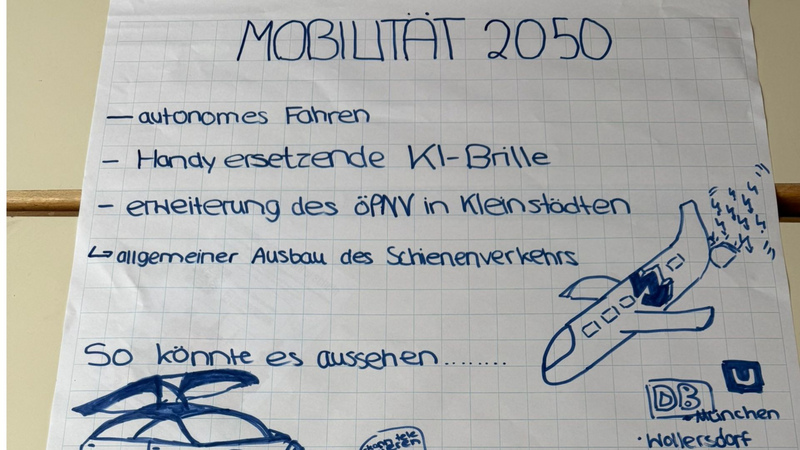 MOBILITÄT 2050
— autonomes Fahren
– Handy ersetzende KI-Brille
– erweiterung des ÖPNV in Kleinstädten
↳ allgemeiner Ausbau des Schienenverkehrs
So könnte es aussehen........
U
DB
München
· Wollersdorf